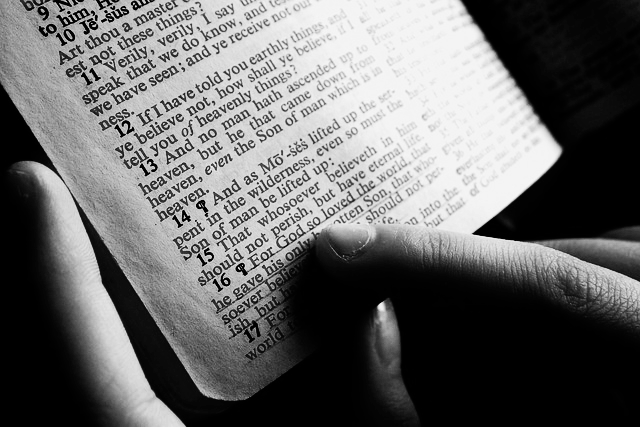 9 Nic
to him, Ho
10 Jē´-ṡŭs an
Art thou a master o
est not these things?
11 Verily, verily, I say
speak that we do know, and tes
we have seen; and ye receive not our
ness.
12 If I have told you earthly things, and
ye believe not, how shall ye believe, if I
tell you of heavenly things?
13 And no man hath ascended up to
heaven, but he that came down from
heaven, even the Son of man which is in
heaven.
14 ¶ And as Mō´-ṡĕs lifted up the ser-
pent in the wilderness, even so must the
Son of man be lifted up:
15 That whosoever believeth in him
should not perish, but have eternal life.
16 ¶ For God so loved the world, that
he gave his only gotten Son, that who-
soever believ should not per-
ish, but h
17 For on into the
world t but that